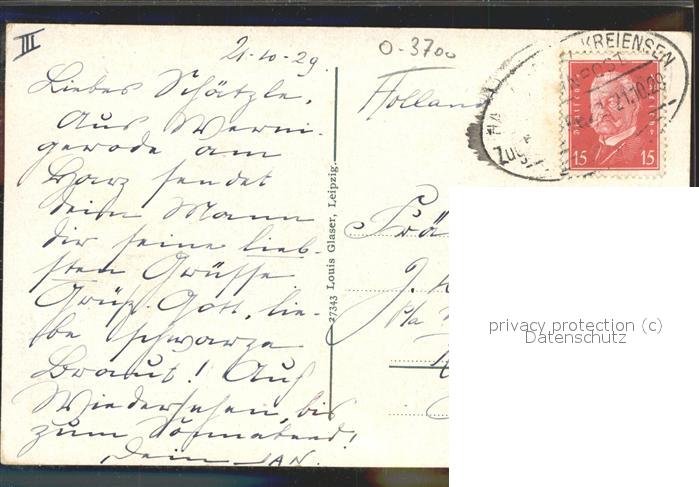 III
21-10-29
0-3700
Liebes Schätzle,
Aus Werni-
gerode am
Harz sendet
dein Mann
dir seine lieb-
sten Grüsse
Grüss Gott, lie-
be schwarze
Braut! Auf
Wiedersehen, bis
zum Sonnabend!
Dein JAN.
27343 Louis Glaser, Leipzig.
Holland
KREIENSEN
BAHNPOST
21.10.29
Zug
15 15
Frä
J.
p/a
privacy protection (c)
Datenschutz